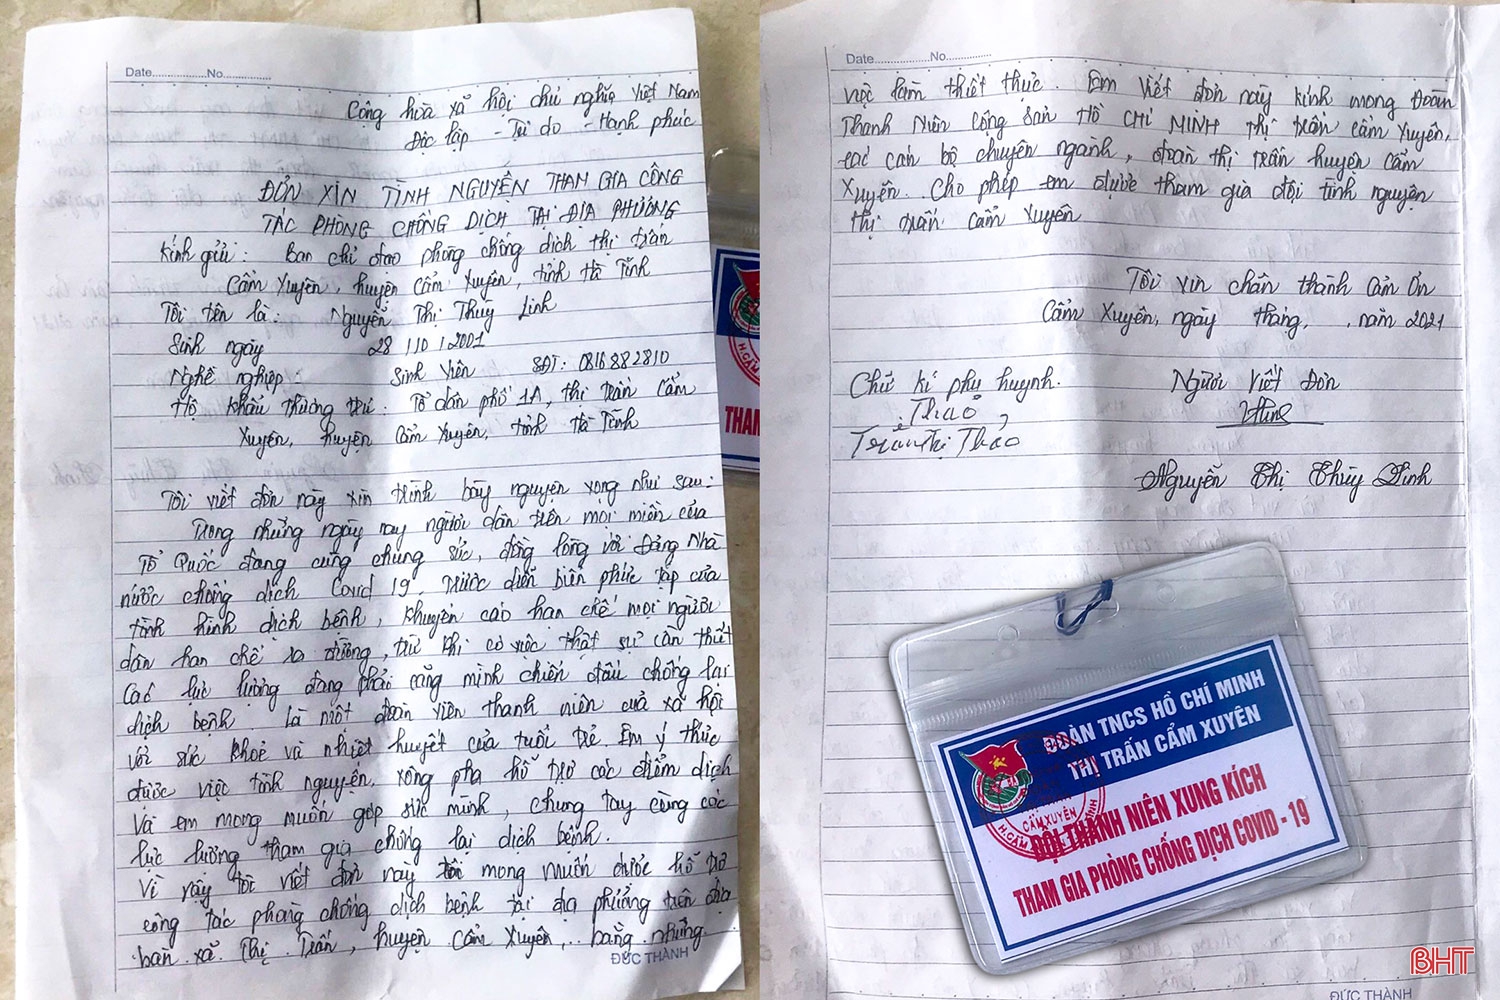 Date................No................
Cộng hòa xã hội chủ nghĩa Việt Nam
Độc lập - Tự do - Hạnh phúc
ĐƠN XIN TÌNH NGUYỆN THAM GIA CÔNG
TÁC PHÒNG CHỐNG DỊCH TẠI ĐỊA PHƯƠNG
Kính gửi: Ban chỉ đạo phòng chống dịch thị trấn
Cẩm Xuyên, huyện Cẩm Xuyên, tỉnh Hà Tĩnh
Tôi tên là: Nguyễn Thị Thùy Linh
Sinh ngày 28/10/2001
Nghề nghiệp: Sinh viên SĐT: 0816882810
Hộ khẩu thường trú: Tổ dân phố 1A, thị trấn Cẩm
Xuyên, huyện Cẩm Xuyên, tỉnh Hà Tĩnh
Tôi viết đơn này xin trình bày nguyện vọng như sau:
Trong những ngày nay người dân trên mọi miền của
Tổ Quốc đang cùng chung sức, đồng lòng với Đảng Nhà
nước chống dịch Covid 19. Trước diễn biến phức tạp của
tình hình dịch bệnh, khuyến cáo hạn chế mọi người
dân hạn chế ra đường, trừ khi có việc thật sự cần thiết
Các lực lượng đang phải căng mình chiến đấu chống lại
dịch bệnh là một đoàn viên thanh niên của xã hội
với sức khoẻ và nhiệt huyết của tuổi trẻ. Em ý thức
được việc tình nguyện, xông pha hỗ trợ các điểm dịch
Và em mong muốn góp sức mình, chung tay cùng các
lực lượng tham gia chống lại dịch bệnh.
Vì vậy tôi viết đơn này tôi mong muốn được hỗ trợ
công tác phòng chống dịch bệnh tại địa phương trên địa
bàn xã Thị Trấn, huyện Cẩm Xuyên,.. bằng những
ĐỨC THÀNH
THAM
Date................No................
việc làm thiết thực. Em viết đơn này kính mong Đoàn
Thanh Niên Cộng Sản HỒ CHÍ MINH Thị trấn Cẩm Xuyên,
các cán bộ chuyên ngành, đoàn thị trấn huyện Cẩm
Xuyên. Cho phép em được tham gia đội tình nguyện
thị trấn Cẩm Xuyên
Tôi xin chân thành Cảm Ơn
Cẩm Xuyên, ngày tháng, , năm 2021
Chữ kí phụ huynh. Người Viết Đơn
Thảo
Trần Thị Thảo
Nguyễn Thị Thùy Linh
ĐOÀN TNCS HỒ CHÍ MINH
THỊ TRẤN CẨM XUYÊN
CẨM XUYÊN
ĐỘI THANH NIÊN XUNG KÍCH
THAM GIA PHÒNG CHỐNG DỊCH COVID - 19
BHT
ĐỨC THÀNH